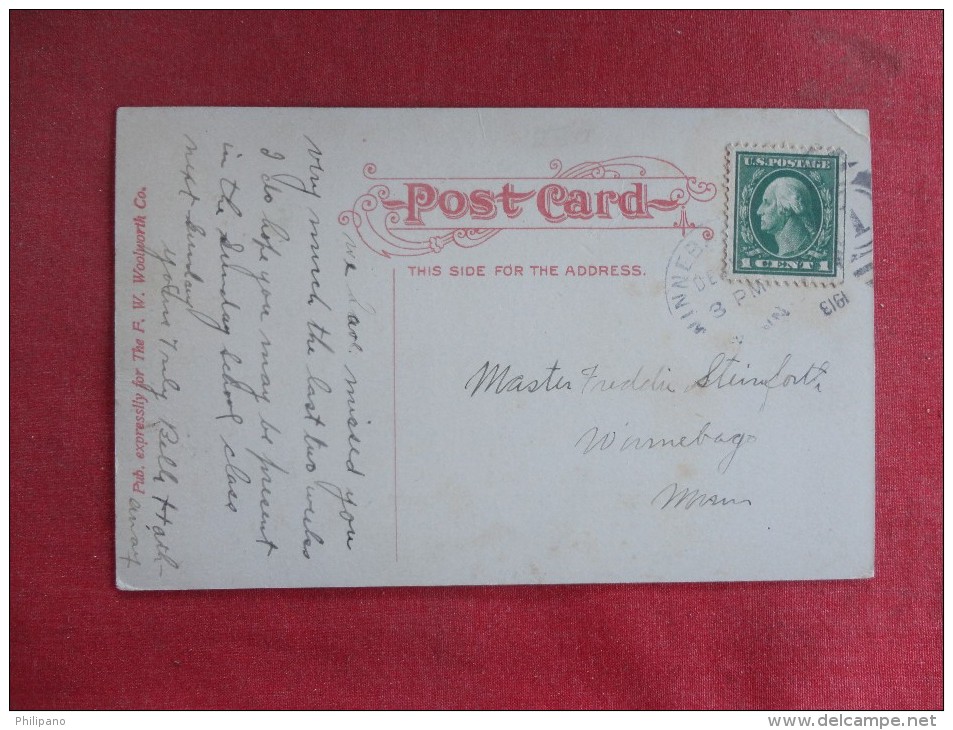 Post Card
THIS SIDE FOR THE ADDRESS.
U.S. POSTAGE
1 CENT 1
WINNEB
DE
3 PM
1913
We have missed you
very much the last two weeks
I do hope you may be present
in the Sunday School class
next Sunday
yours Truly Belle Hath-
away
Pub. expressly for The F. W. Woolworth Co.
Master Freddie Steinforth
Winnebago
Minn
Philipano
www.delcampe.net